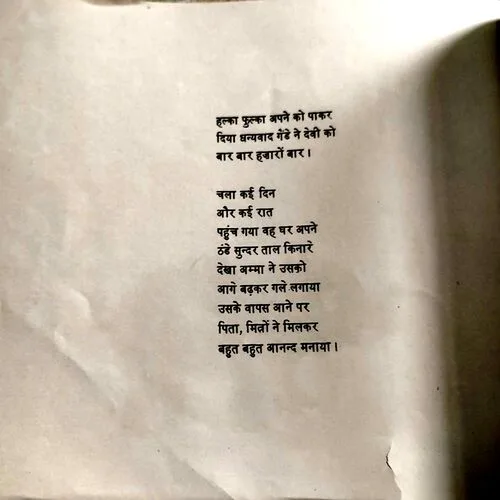 हल्का फुल्का अपने को पाकर
दिया धन्यवाद गैंडे ने देवी को
बार बार हज़ारों बार।
चला कई दिन
और कई रात
पहुंच गया वह घर अपने
ठंडे सुन्दर ताल किनारे
देखा अम्मा ने उसको
आगे बढ़कर गले लगाया
उसके वापस आने पर
पिता, मित्रों ने मिलकर
बहुत बहुत आनन्द मनाया।